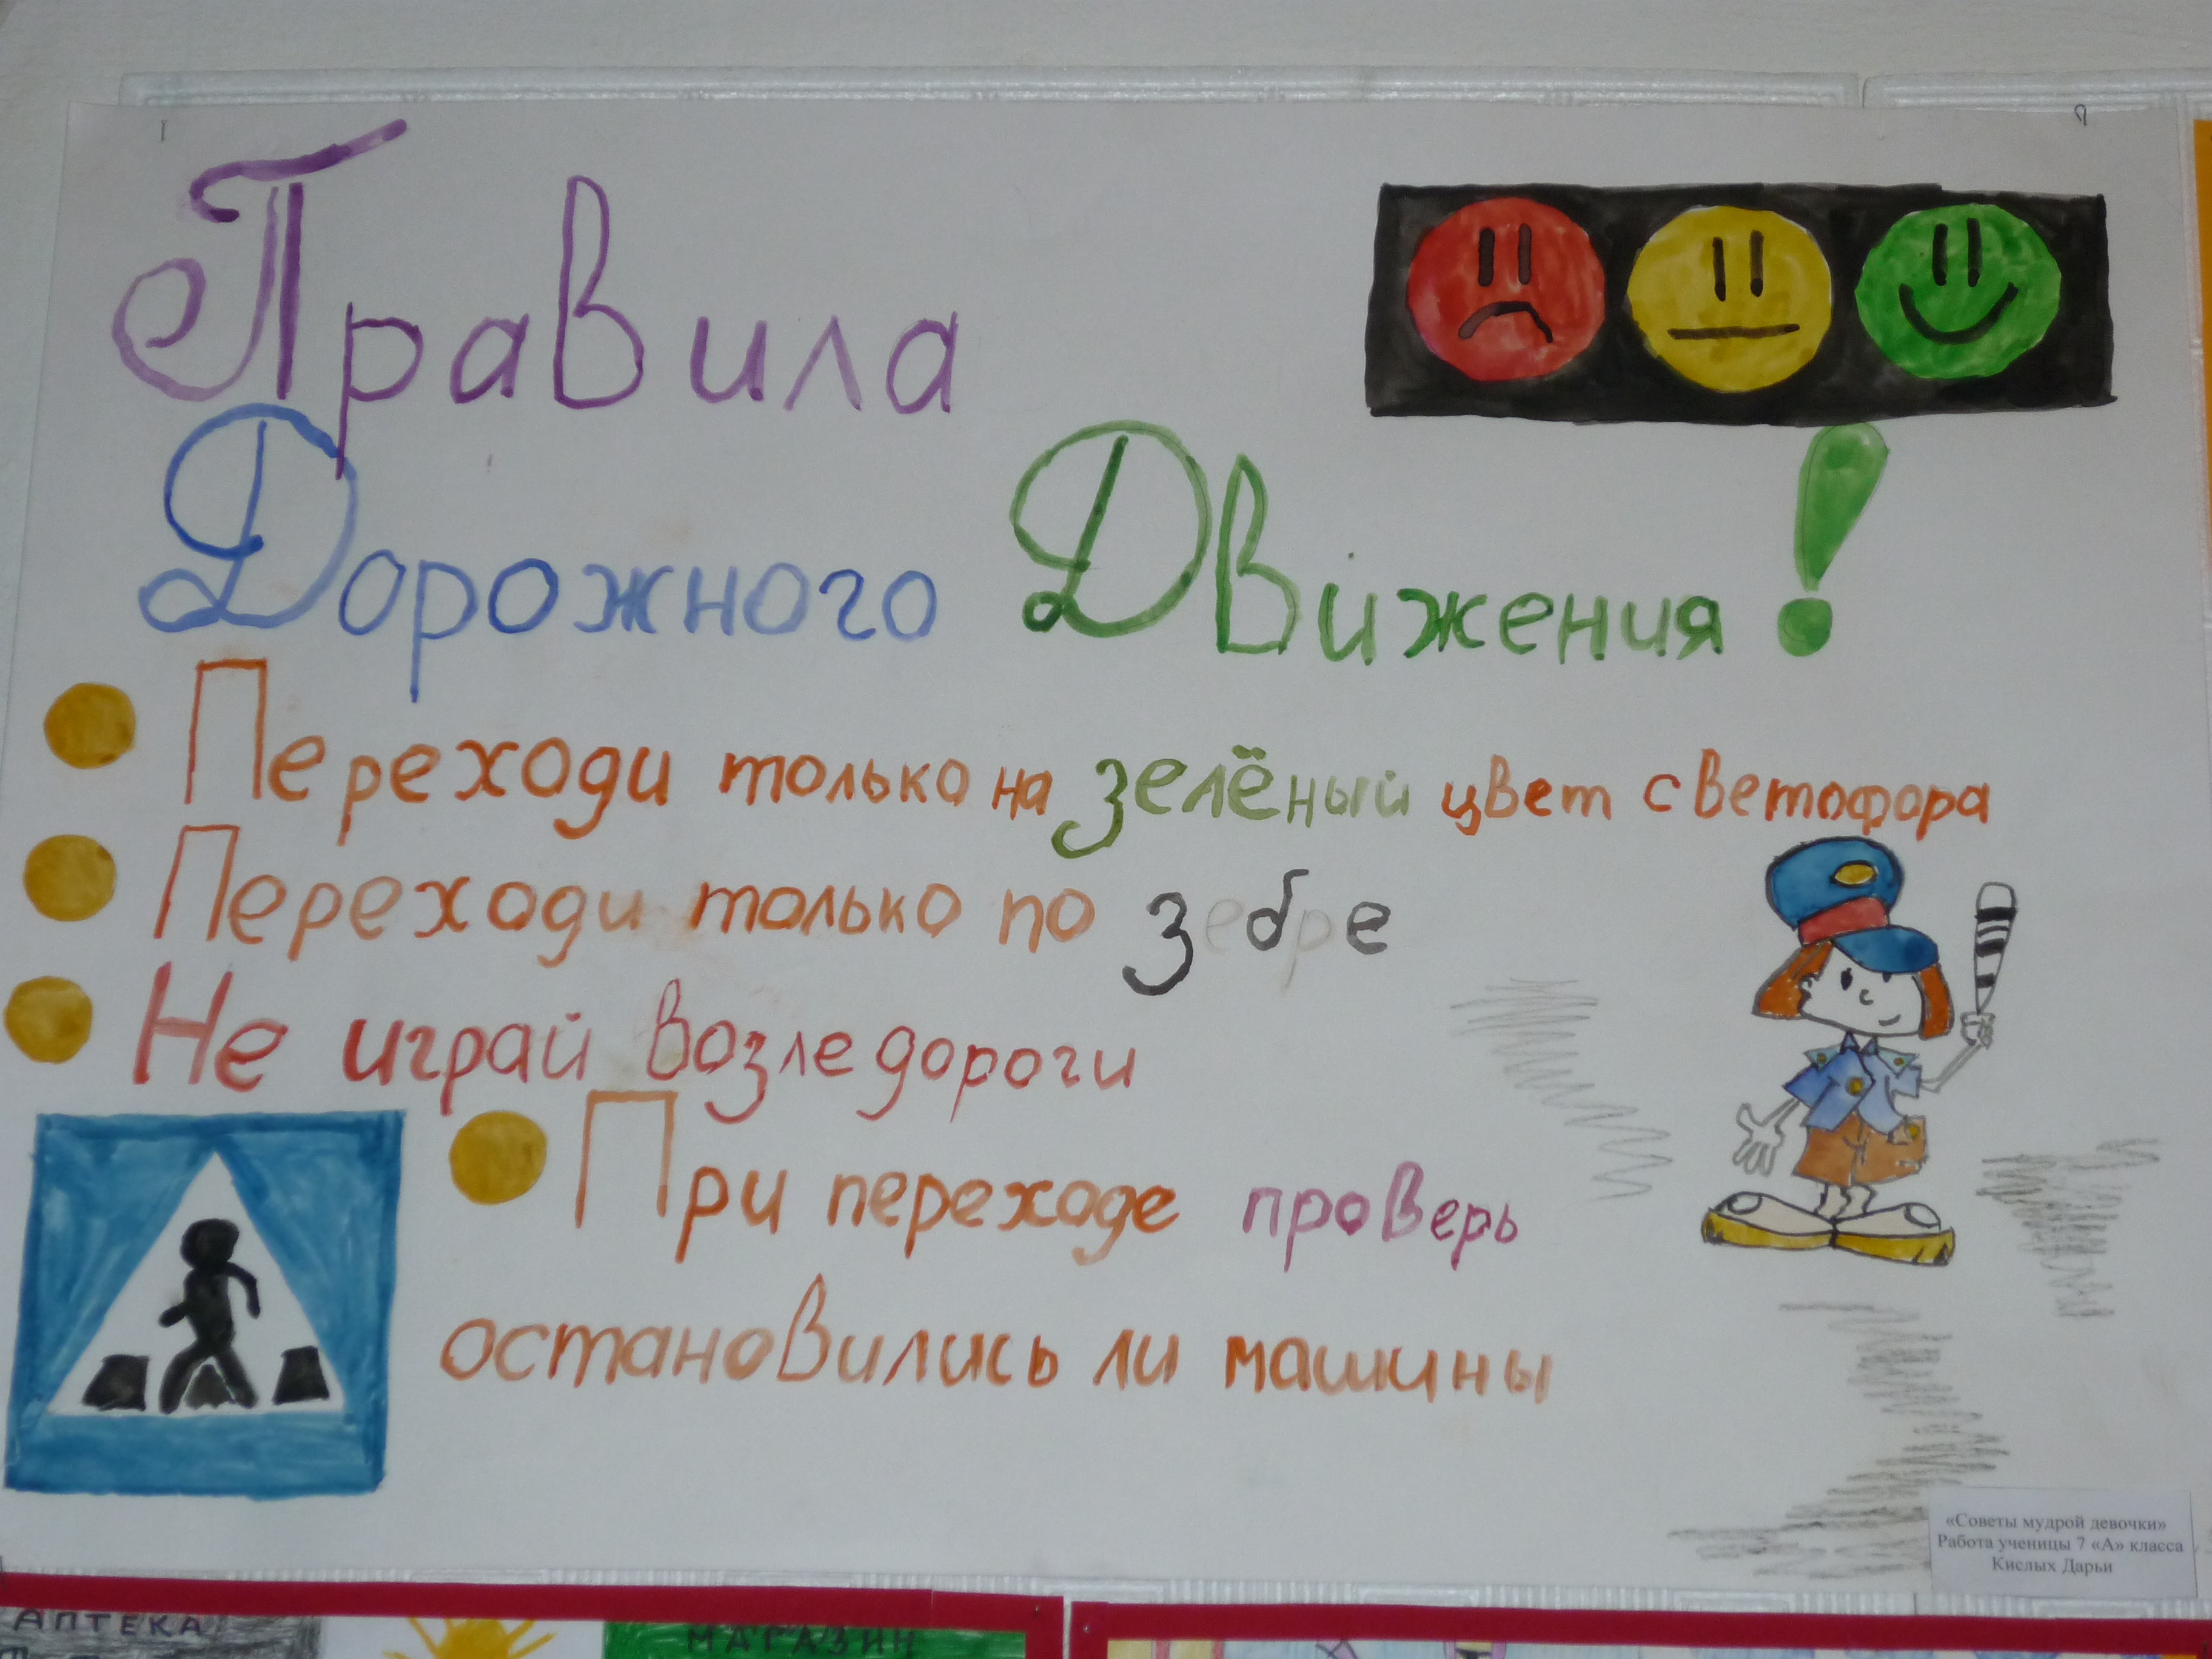 Правила
Дорожного Движения!
Переходи только на зелёный цвет светофора
Переходи только по зебре
Не играй возле дороги
При переходе проверь
остановились ли машины
«Советы мудрой девочки»
Работа ученицы 7 «А» класса
Кислых Дарьи
АПТЕКА
МАГАЗИН